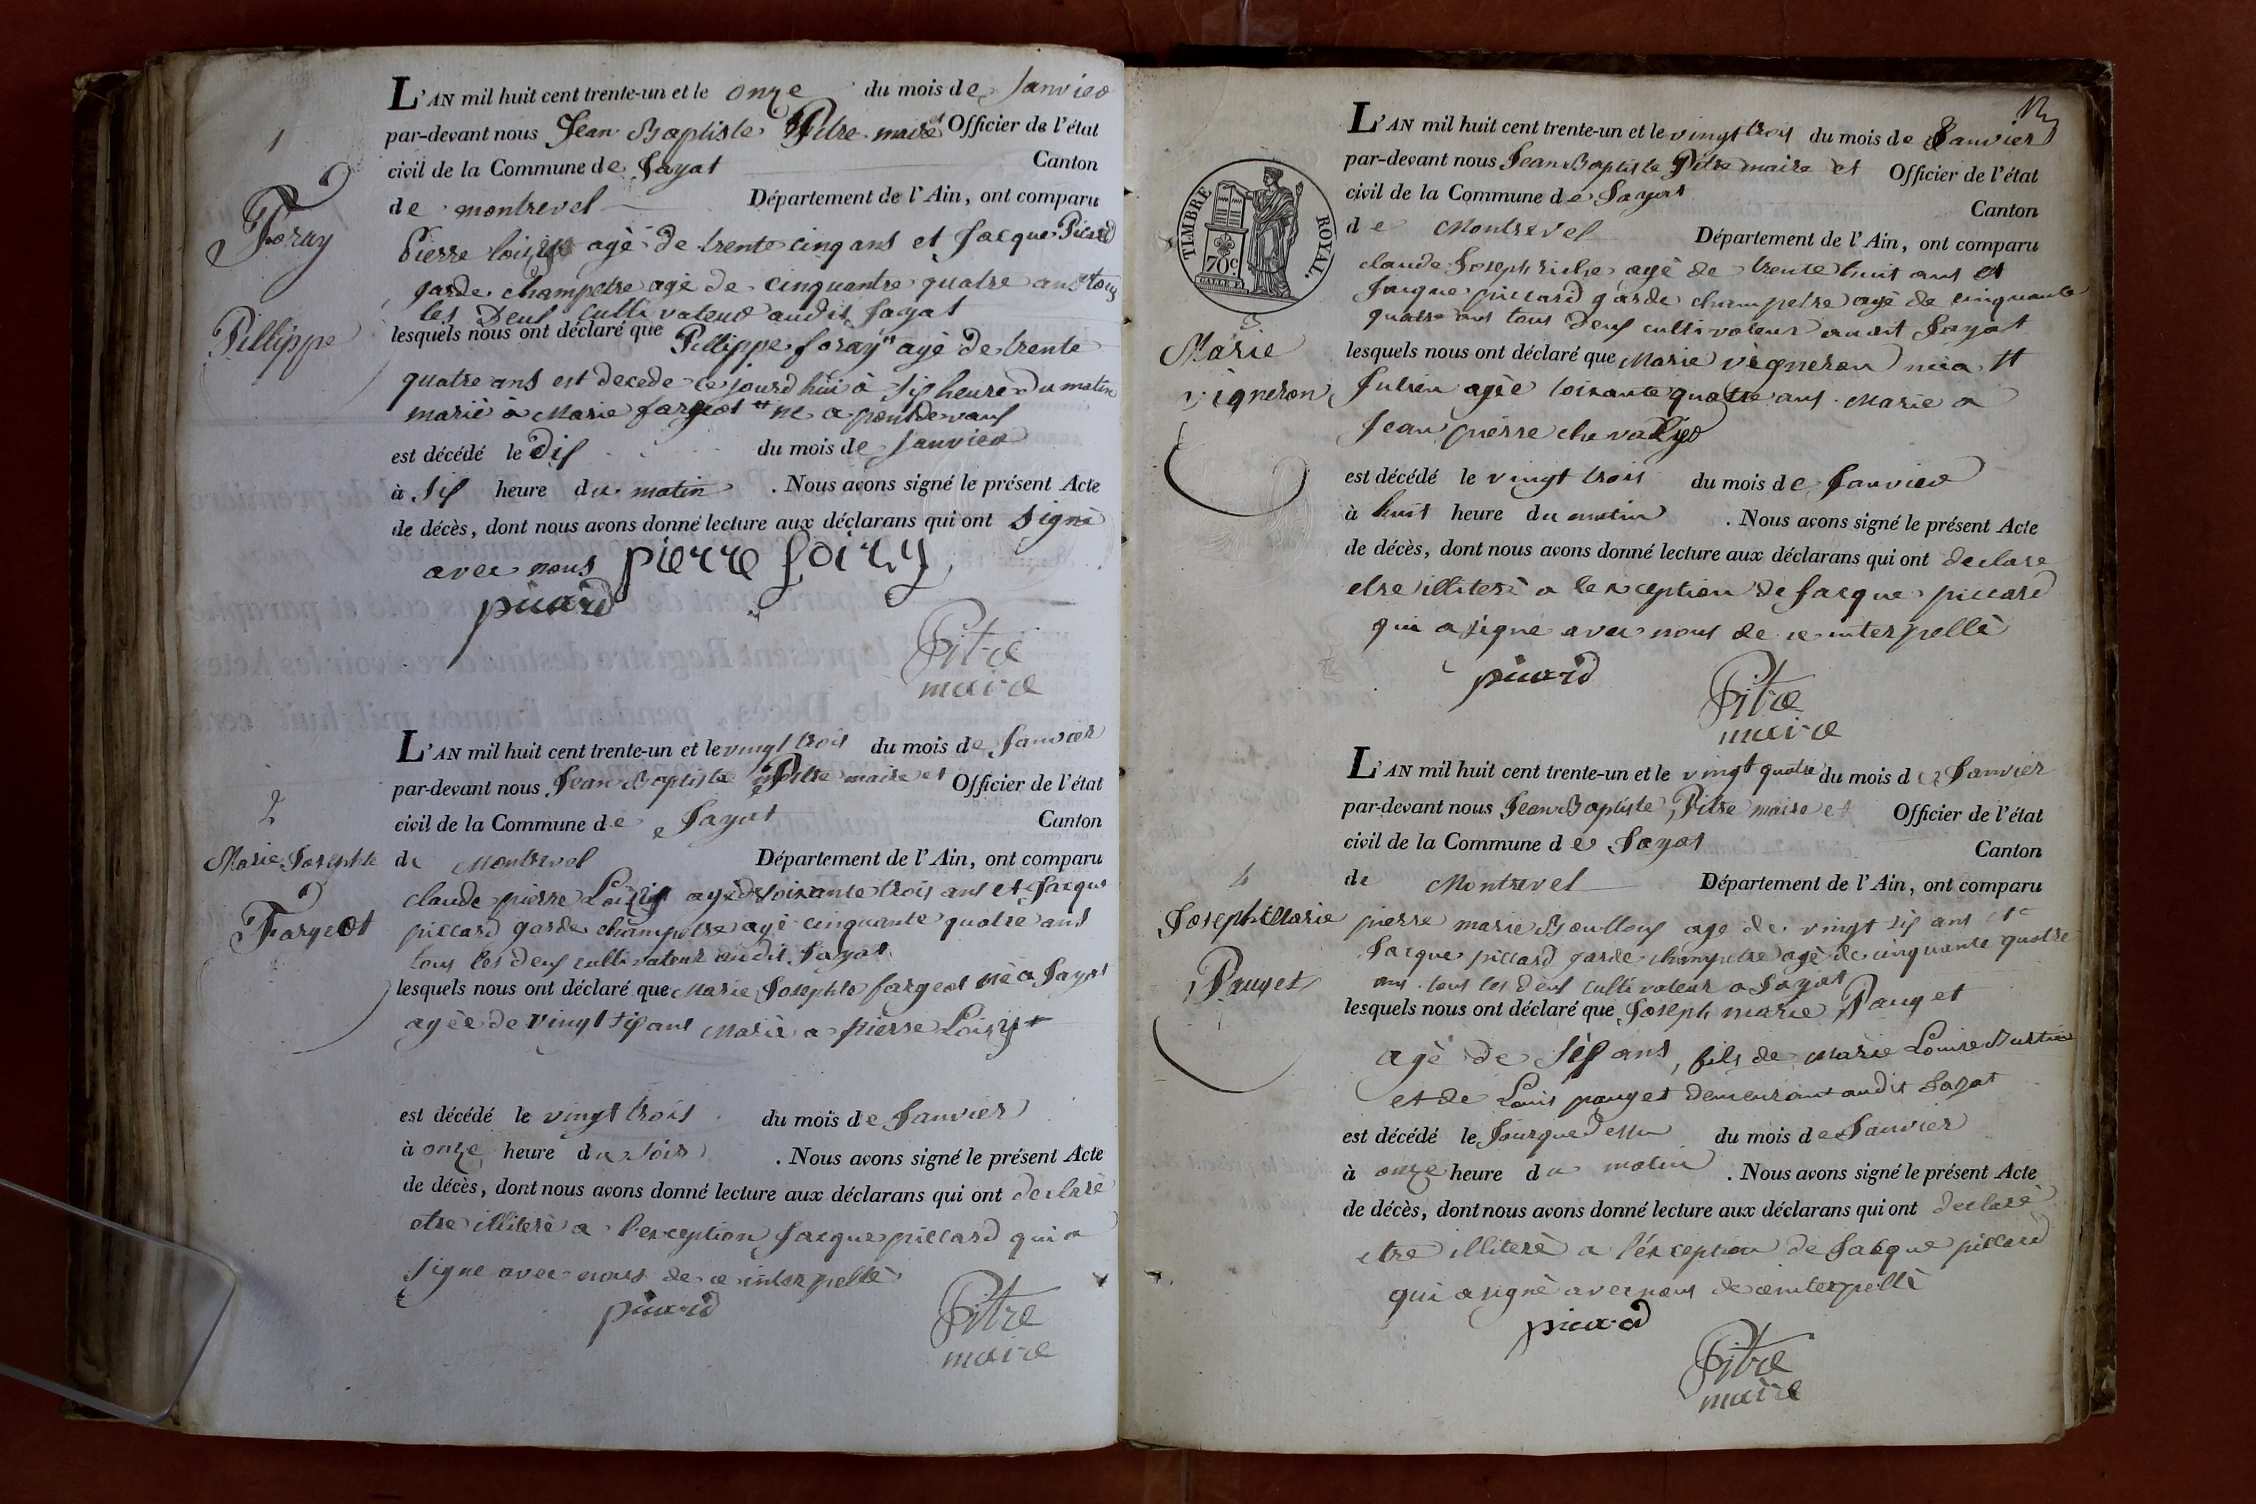 1
Foray
Pillippe
L'AN mil huit cent trente-un et le onze du mois de Janvier
par-devant nous Jean Baptiste Pitre maire et Officier de l'état
civil de la Commune de Jayat Canton
de montrevel Département de l'Ain, ont comparu
Pierre loizy agé de trente cinq ans et Jacque Picard
garde champetre agé de cinquantre quatre ans tous
les Deux cultivateur audit Jayat
lesquels nous ont déclaré que Pillippe foray agè de trente
quatre ans est decede ce jourd hui à Six heure du matin
marié à Marie fargeot et ne a pontdevaux
est décédé le Dix du mois de Janvier
à Six heure du matin . Nous avons signé le présent Acte
de décès, dont nous avons donné lecture aux déclarans qui ont signé
avec nous pierre loizy
picard
Pitre
maire
2
Marie Josephte
Fargeot
L'AN mil huit cent trente-un et le vingt trois du mois de Janvier
par-devant nous Jean Baptiste Pitre maire et Officier de l'état
civil de la Commune de Jayat Canton
de Montrevel Département de l'Ain, ont comparu
claude pierre Loizy agé de soixante trois ans et Jacque
piccard garde champetre agé cinquante quatre ans
tous les deux cultivateur audit Jayat
lesquels nous ont déclaré que Marie Josephte fargeot né a Jayat
agée de vingt six ans Marié a pierre Loizy
est décédé le vingt trois du mois de Janvier
à onze heure du soir . Nous avons signé le présent Acte
de décès, dont nous avons donné lecture aux déclarans qui ont declaré
etre illiteré a l'exception Jacque piccard qui a
signe avec nous de ce interpellé
picard
Pitre
maire
TIMBRE ROYAL
70c
3
Marie
vigneron
L'AN mil huit cent trente-un et le vingt trois du mois de Janvier
par-devant nous Jean Baptiste Pitre maire et Officier de l'état
civil de la Commune de Jayat
Canton
de Montrevel Département de l'Ain, ont comparu
claude Joseph riche agé de trente huit ans et
Jacque piccard garde champetre agé de cinquante
quatre ans tous deux cultivateur audit Jayat
lesquels nous ont déclaré que Marie vigneron née a St
Julien agée soixante quatre ans Marie a
Jean pierre chevallier
est décédé le vingt trois du mois de Janvier
à huit heure du matin . Nous avons signé le présent Acte
de décès, dont nous avons donné lecture aux déclarans qui ont declare
etre illiteré a l'exception de Jacque piccard
qui a signe avec nous de ce interpellé
picard
Pitre
maire
4
Joseph Marie
Pauget
L'AN mil huit cent trente-un et le vingt quatre du mois de Janvier
par-devant nous Jean Baptiste Pitre maire et Officier de l'état
civil de la Commune de Jayat Canton
de Montrevel Département de l'Ain, ont comparu
pierre marie Boulloux age de vingt six ans et
Jacque piccard garde champetre agé de cinquante quatre
ans tous les deux cultivateur a Jayat
lesquels nous ont déclaré que Joseph marie Pauget
agé de six ans, fils de Marie Louise
et de Louis pauget demeurant audit Jayat
est décédé le Jour que dessu du mois de Janvier
à onze heure du matin . Nous avons signé le présent Acte
de décès, dont nous avons donné lecture aux déclarans qui ont declaré
etre illiteré a l'exception de Jacque piccard
qui a signé avec nous de ce interpellé
picard
Pitre
maire